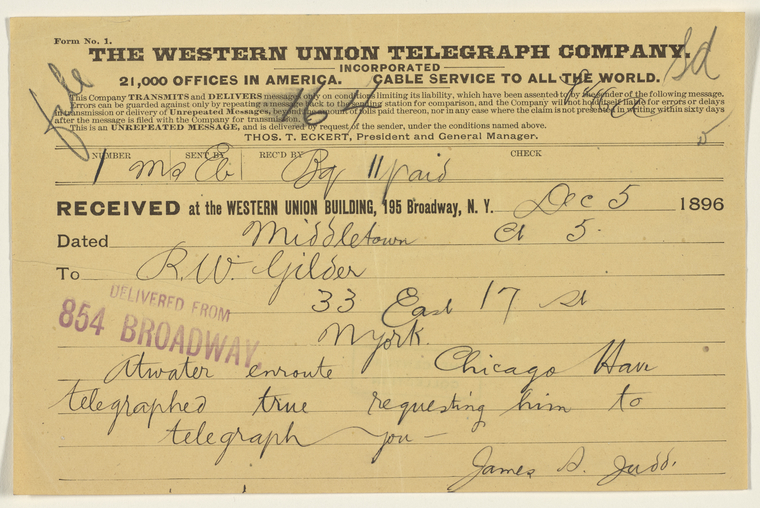 Form No. 1.
THE WESTERN UNION TELEGRAPH COMPANY.
INCORPORATED
21,000 OFFICES IN AMERICA. CABLE SERVICE TO ALL THE WORLD.
This Company TRANSMITS and DELIVERS messages only on conditions limiting its liability, which have been assented to by the sender of the following message.
Errors can be guarded against only by repeating a message back to the sending station for comparison, and the Company will not hold itself liable for errors or delays
in transmission or delivery of Unrepeated Messages, beyond the amount of tolls paid thereon, nor in any case where the claim is not presented in writing within sixty days
after the message is filed with the Company for transmission.
This is an UNREPEATED MESSAGE, and is delivered by request of the sender, under the conditions named above.
THOS. T. ECKERT, President and General Manager.
164
NUMBER SENT BY REC'D BY CHECK
1 Ma Eb Bq 11 paid
RECEIVED at the WESTERN UNION BUILDING, 195 Broadway, N. Y. Dec 5 1896
Dated Middletown Ct 5.
To R.W. Gilder
33 East 17 St
N York.
DELIVERED FROM
854 BROADWAY.
Atwater enroute Chicago Have
telegraphed true requesting him to
telegraph you —
James S. Judd.